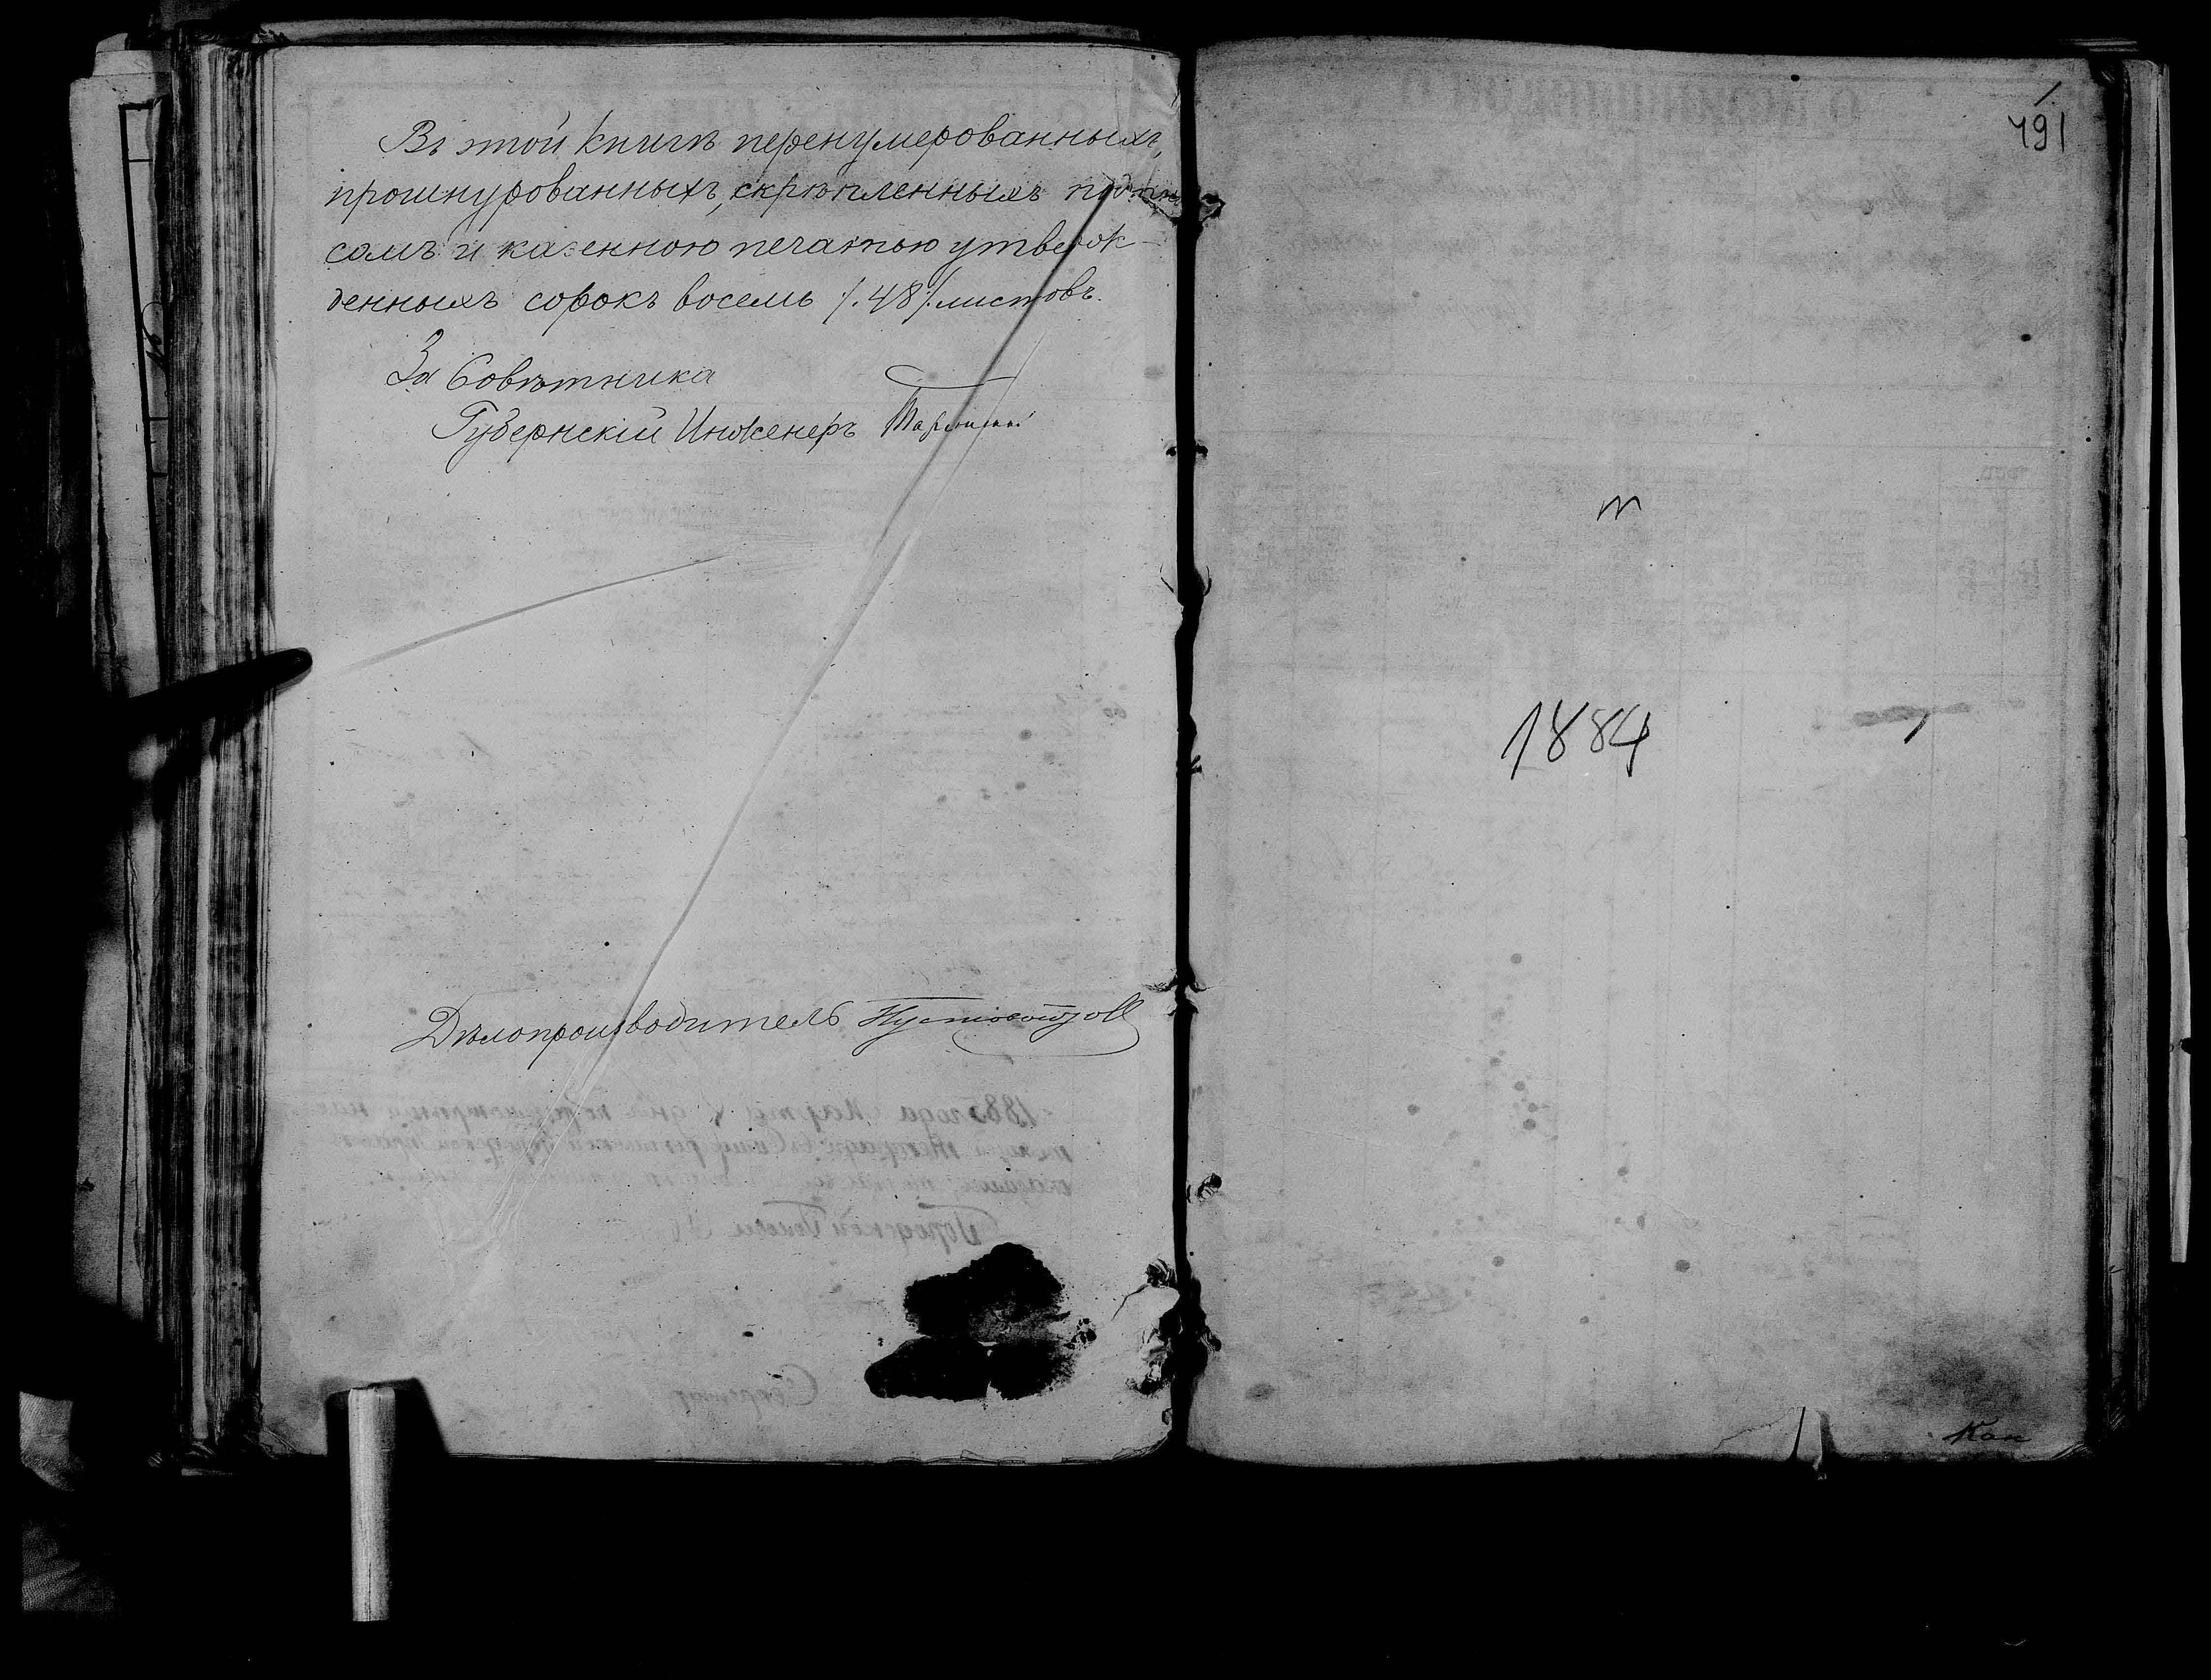 Въ этой книгѣ перенумерованныхъ,
прошнурованныхъ, скрѣпленныхъ подпи
сомъ и казенною печатью утверж-
денныхъ сорокъ восемь /.48/. листовъ.
За Совѣтника
Губернскій Инженеръ
Дѣлопроизводитель
491
т
1884
Кан